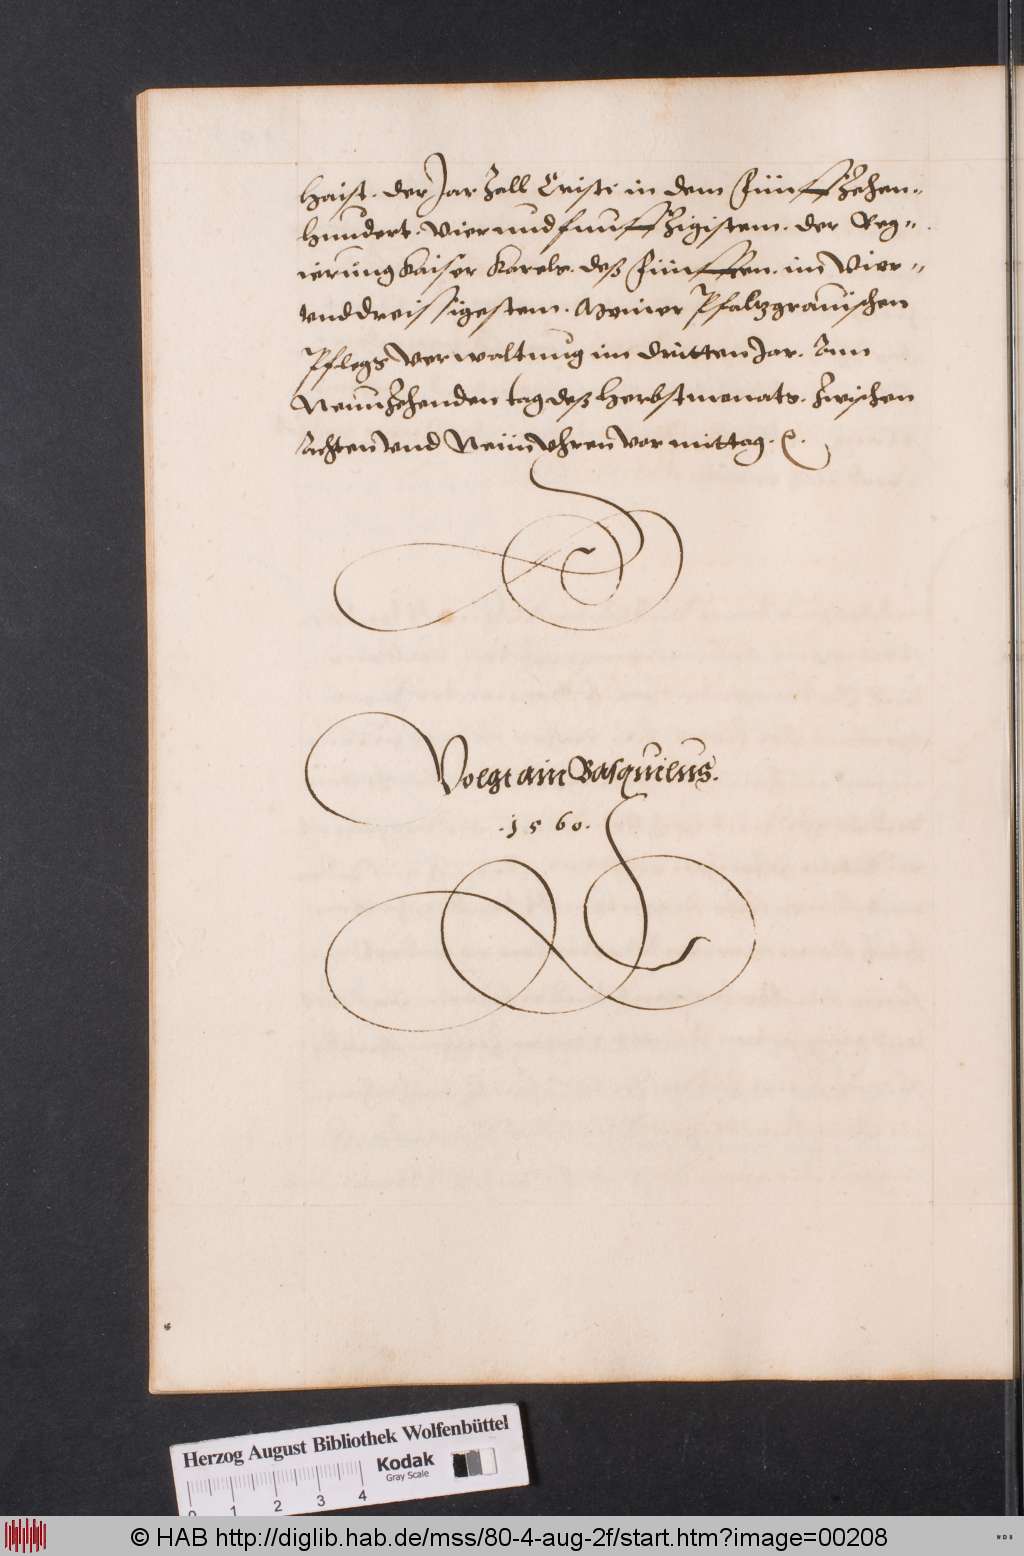 haist. der Jar Zall Cristi in dem Fünffzehen-
hundert. vierundfunffzigistem. der Reg-
ierung Kaiser Karels. deß Fünfften. im Vier-
vnddreissigestem. Meiner Pfaltzgrauischen
Pflegs Verwaltnug im dritten Jar. Ann
Neunzehenden tag deß Herbstmonats. Zwischen
Achten vnd Neün Vhren vor mittag.
Volgt ain Basquilus.
.1560.
Herzog August Bibliothek Wolfenbüttel
Kodak
Gray Scale
0 1 2 3 4
© HAB http://diglib.hab.de/mss/80-4-aug-2f/start.htm?image=00208